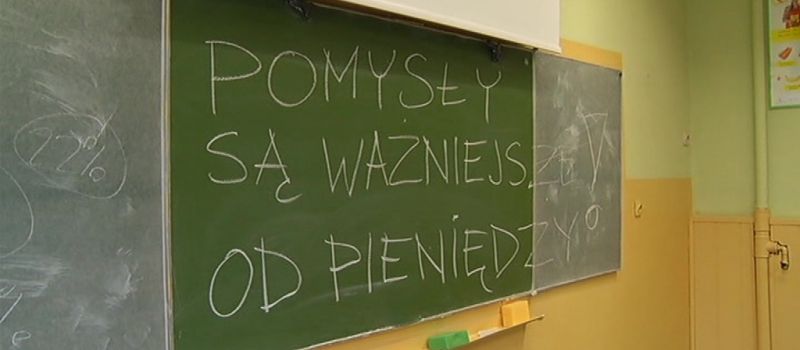 POMYSŁY
SĄ WAŻNIEJSZE
OD PIENIĘDZY!
22%